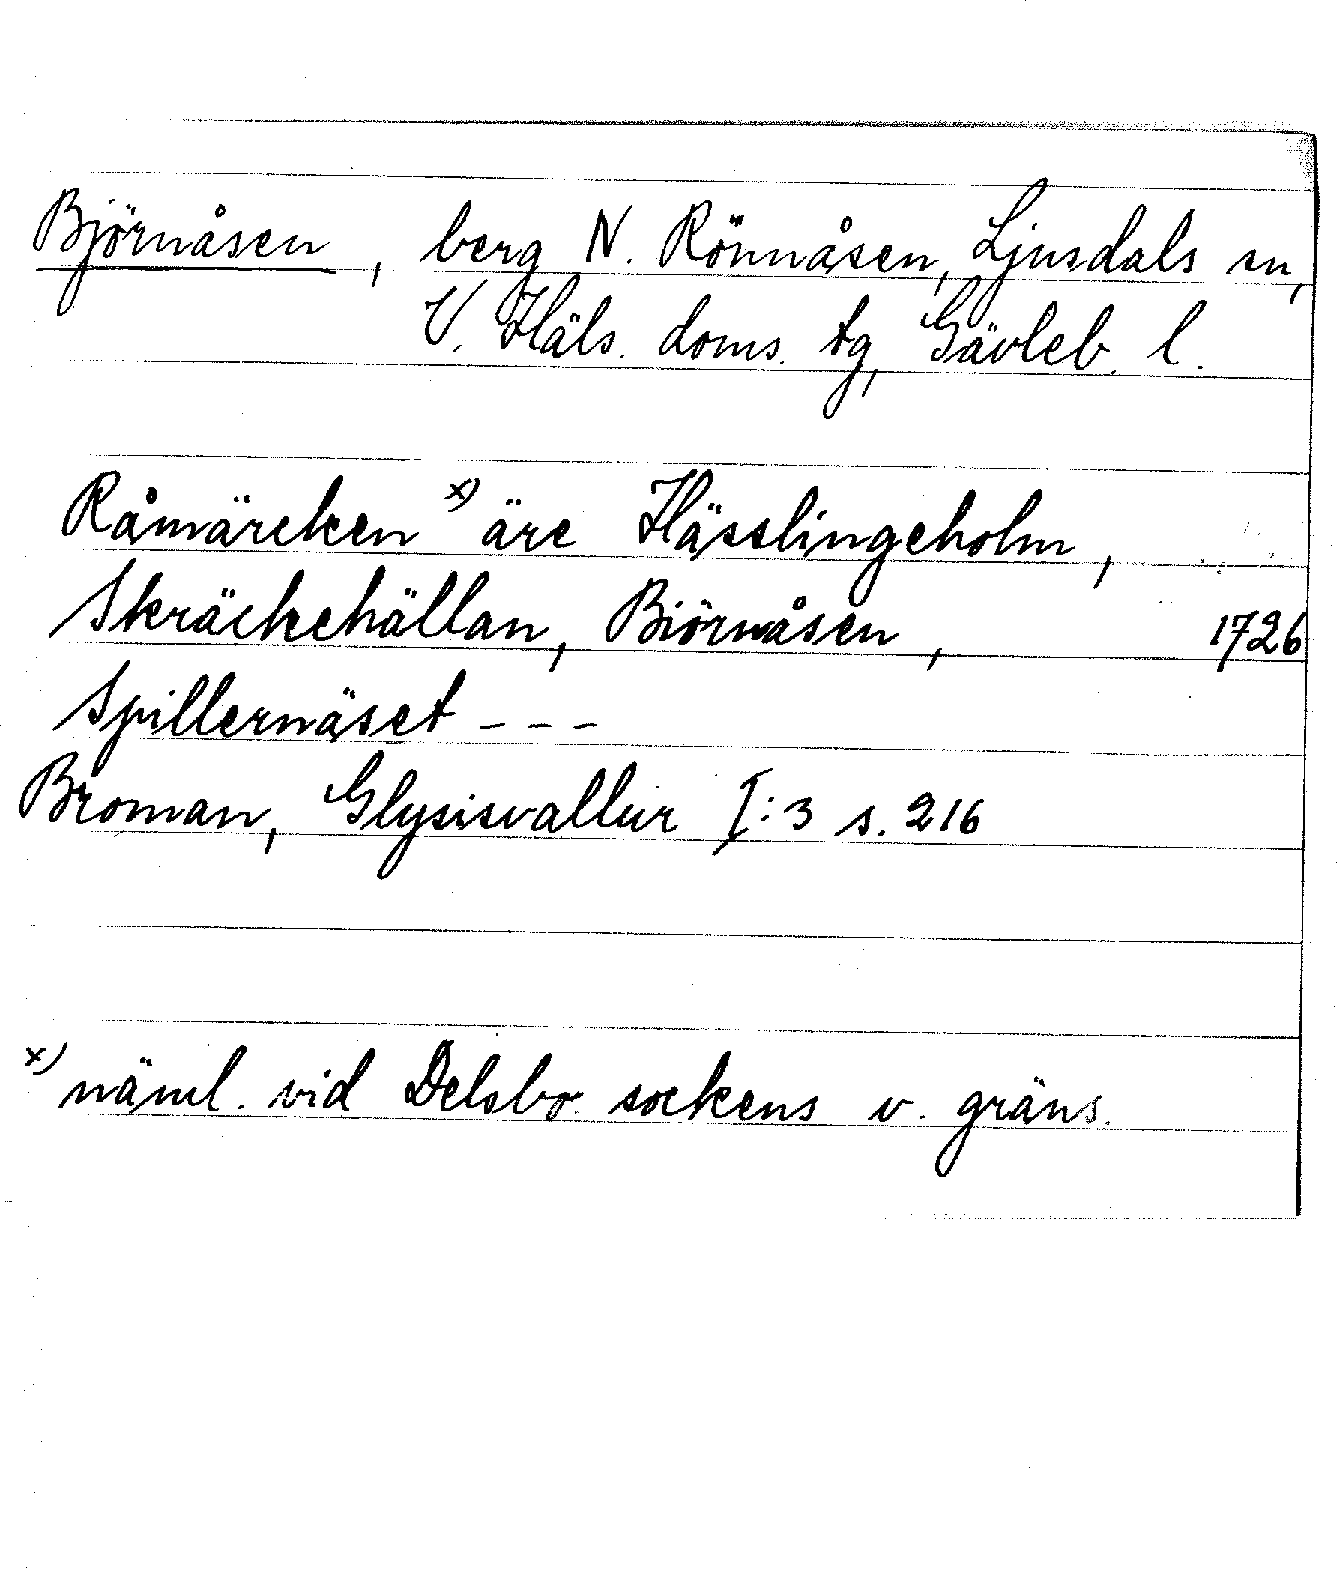 Björnåsen, berg N. Rönnåsen, Ljusdals sn,
V. Häls. doms. tg, Gävleb. l.
Råmärcken x) äre Hässlingeholm,
Skräckehällan, Biörnåsen, 1726
Spillernäset - - -
Broman, Glysisvallur I:3 s. 216
x) näml. vid Delsbo sockens v. gräns.